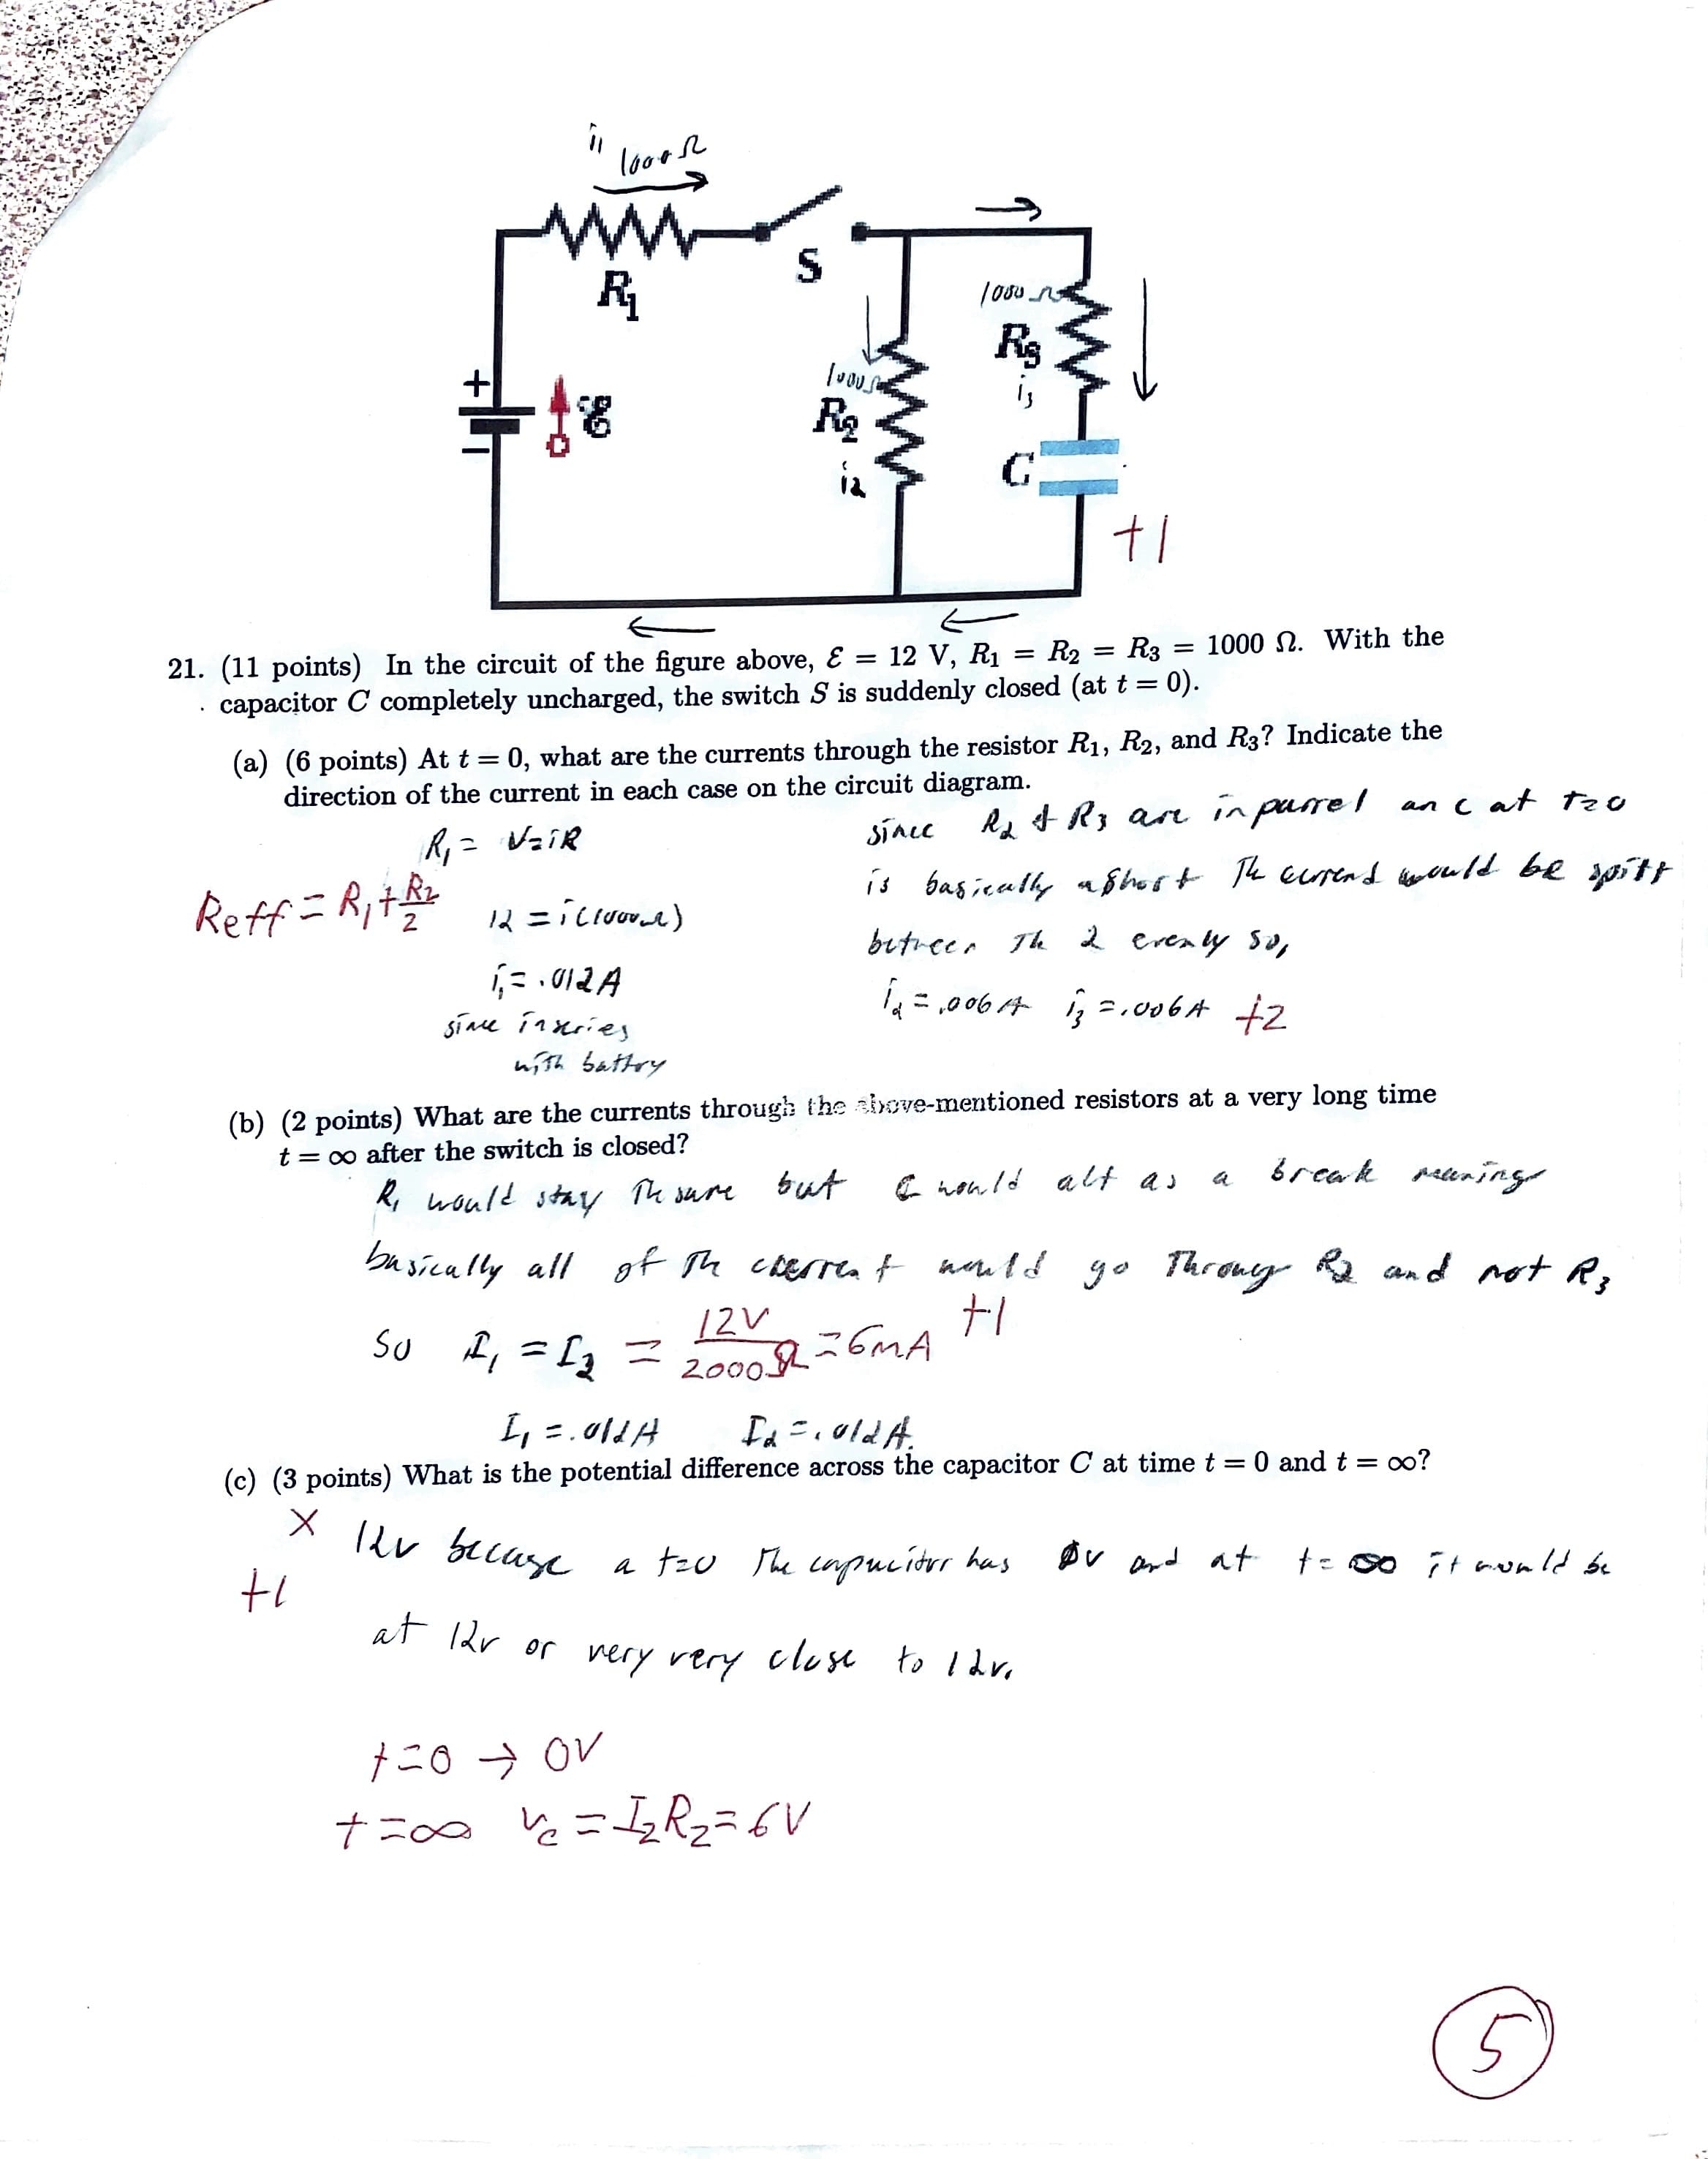 i1 1000 Ω
R1
S
1000 Ω
R3
i3
+
ℰ
−
1000Ω
R2
i2
C
+1
21. (11 points) In the circuit of the figure above, ℰ = 12 V, R1 = R2 = R3 = 1000 Ω. With the
capacitor C completely uncharged, the switch S is suddenly closed (at t = 0).
(a) (6 points) At t = 0, what are the currents through the resistor R1, R2, and R3? Indicate the
direction of the current in each case on the circuit diagram.
R1 = V=iR
Reff = R1 + R2/2
12 = i(1000Ω)
i1 = .012A
since in series
with battry
since R2 & R3 are in purrel an c at t=0
is basically a short Th current would be spitt
between Th 2 evenly so,
i2 = .006A i3 = .006A +2
(b) (2 points) What are the currents through the above-mentioned resistors at a very long time
t = ∞ after the switch is closed?
R1 would stay The same but C would alt as a break meaning
basically all of The current would go Throug R2 and not R3
So I1 = I2 = 12V/2000Ω = 6mA +1
I1 = .012A I2 = .012A.
(c) (3 points) What is the potential difference across the capacitor C at time t = 0 and t = ∞?
X 12v because a t=0 The capacitor has 0v and at t=∞ it would be
+1
at 12v or very very close to 12v.
t=0 → 0V
t=∞ Vc = I2R2 = 6V
5